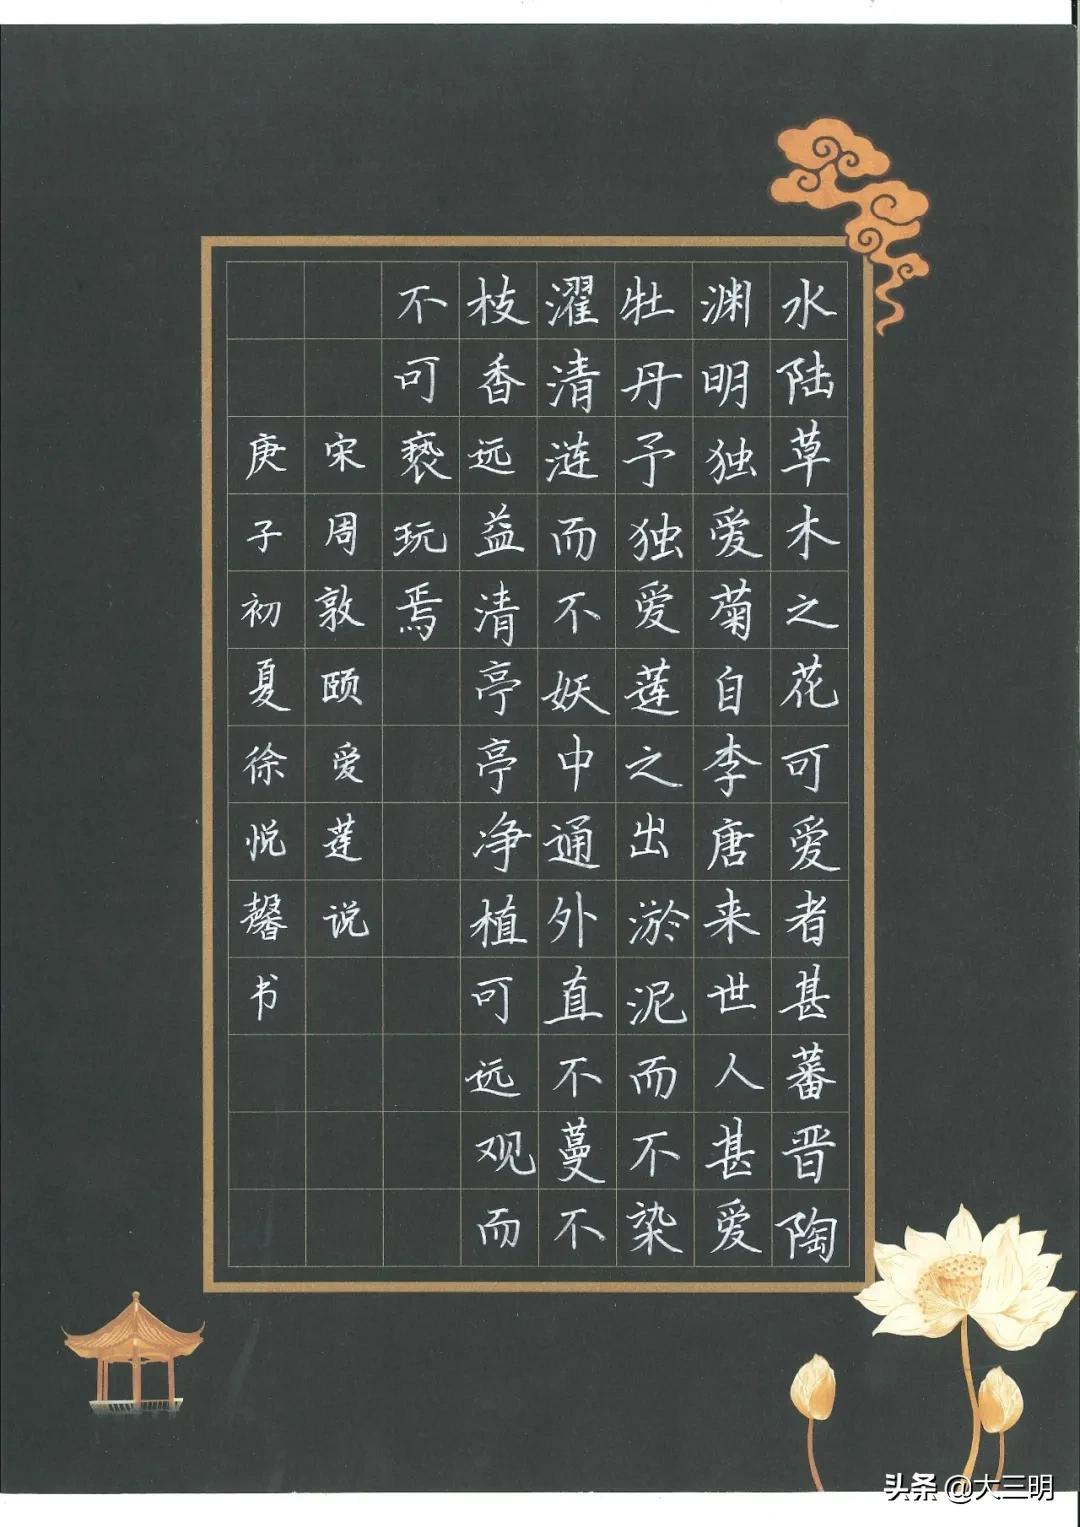 水陆草木之花可爱者甚蕃晋陶
渊明独爱菊自李唐来世人甚爱
牡丹予独爱莲之出淤泥而不染
濯清涟而不妖中通外直不蔓不
枝香远益清亭亭净植可远观而
不可亵玩焉
宋周敦颐爱莲说
庚子初夏徐悦馨书
头条 @大三明